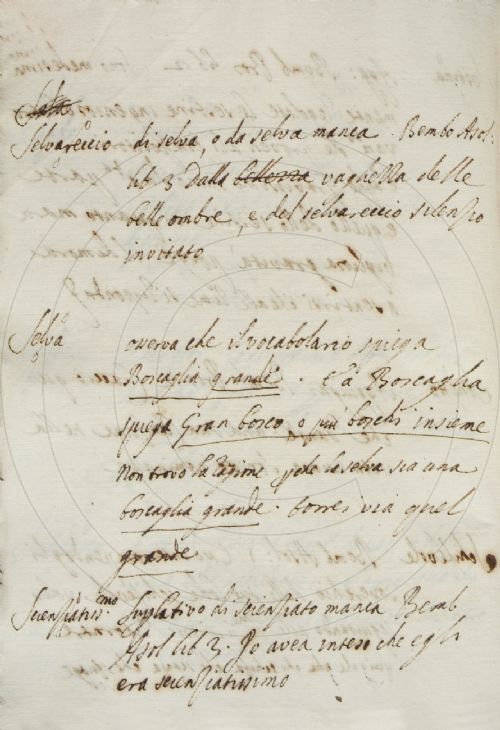 Selvareccio di selva, o da selva manca. Bembo Asol:
lib 3 Dalla bellezza vaghezza delle
belle ombre, e del selvareccio silenzio
invitato
Selva osserva che il vocabolario spiega
Boscaglia grande. E a Boscaglia
spiega Gran bosco, o più boschi insieme
Non trovo la ragione che la selva sia una
boscaglia grande. Correi via quel
grande
Scienziatissmo suplativo di scienziato manca Bemb
Asol lib 3. Io avea inteso che egli
era scienziatissimo